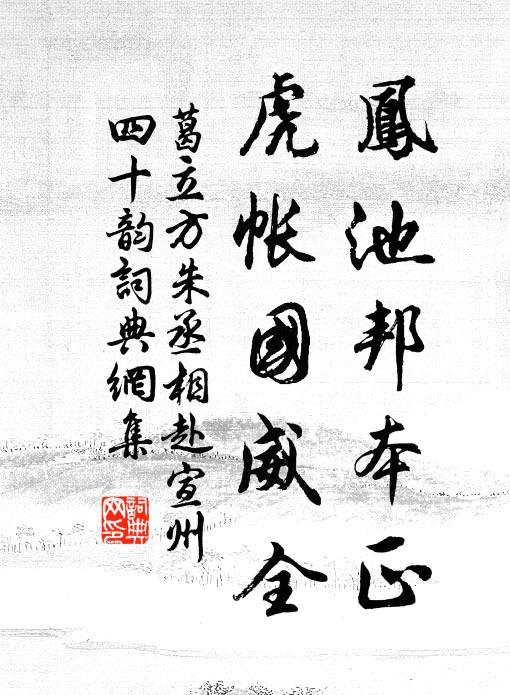 鳳池邦本正
虎帳國威全
葛立方朱丞相赴宣州
四十韵詞典網集
詞典
网印